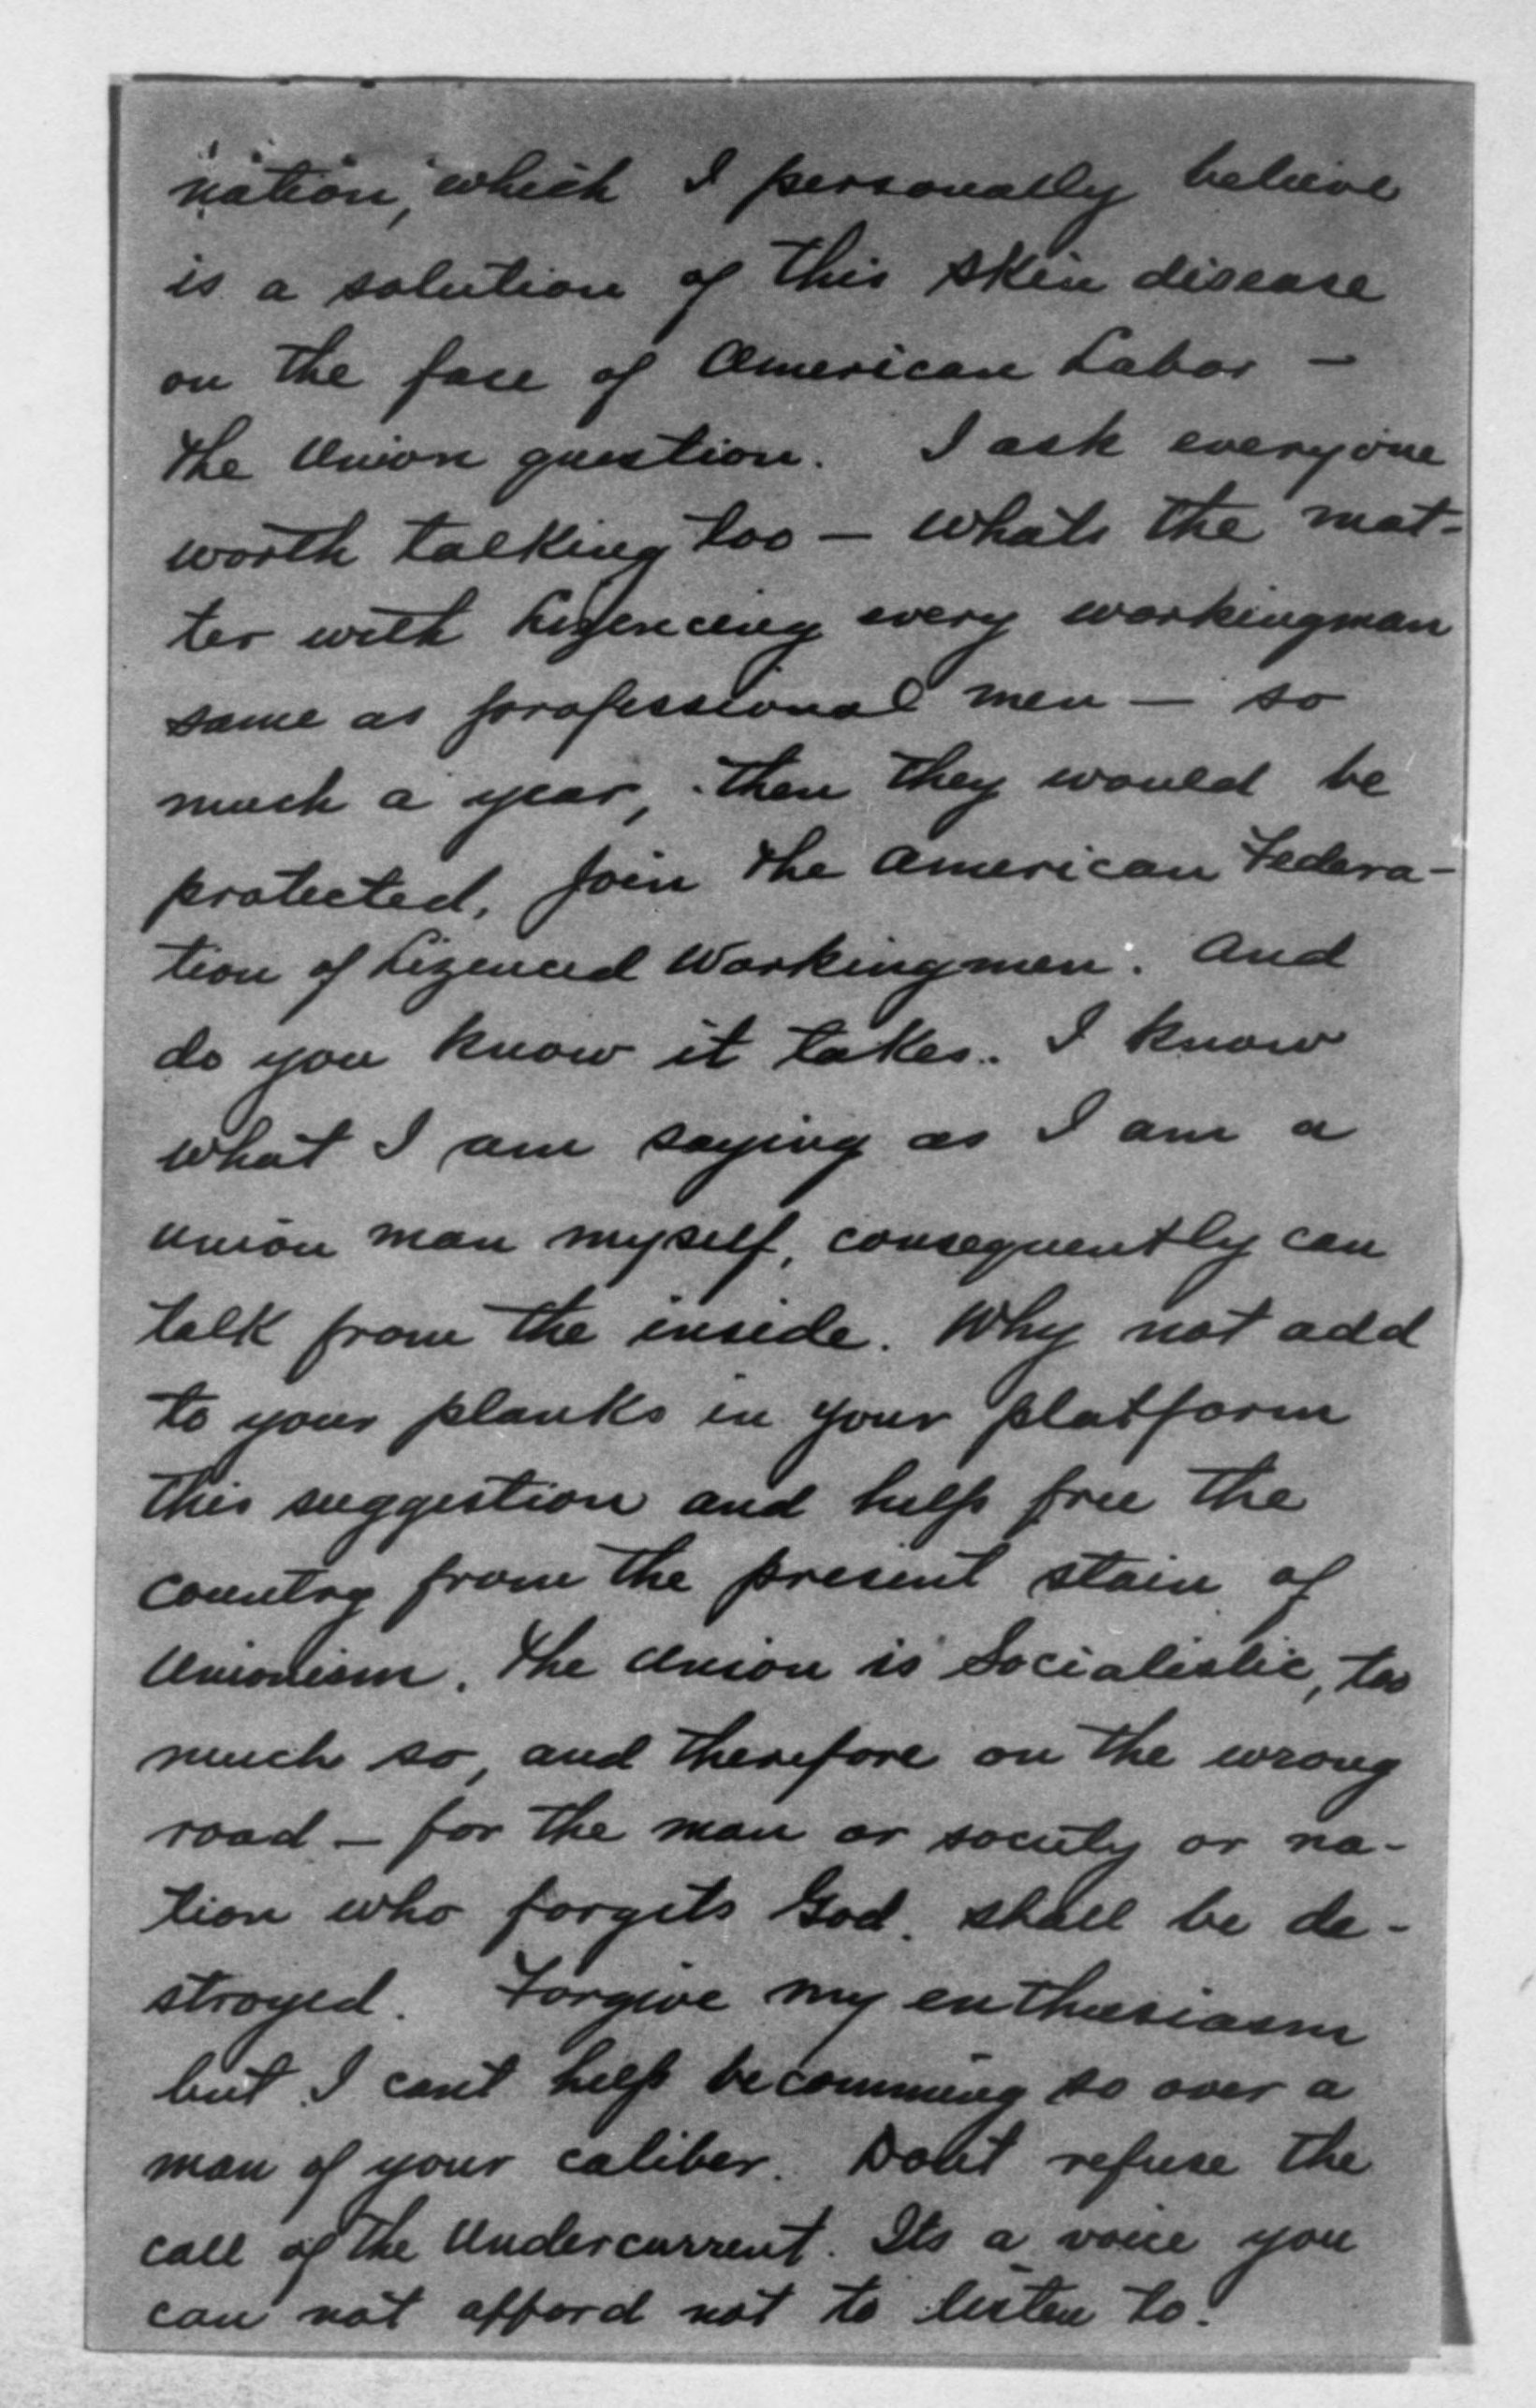 nation, which I personally believe
is a solution of this skin disease
on the face of American Labor —
the Union question. I ask everyone
worth talking too — whats the mat-
ter with Lizencing every workingman
same as professional men — so
much a year, then they would be
protected, join the American Federa-
tion of Lizenced Workingmen. And
do you know it takes. I know
what I am saying as I am a
union man myself, consequently can
talk from the inside. Why not add
to your planks in your platform
this suggestion and help free the
country from the present stain of
Unionism. The Union is Socialistic, too
much so, and therefore on the wrong
road — for the man or society or na-
tion who forgets God. shall be de-
stroyed. Forgive my enthusiasm
but I cant help becomming so over a
man of your caliber. Dont refuse the
call of the Undercurrent. Its a voice you
can not afford not to listen to.